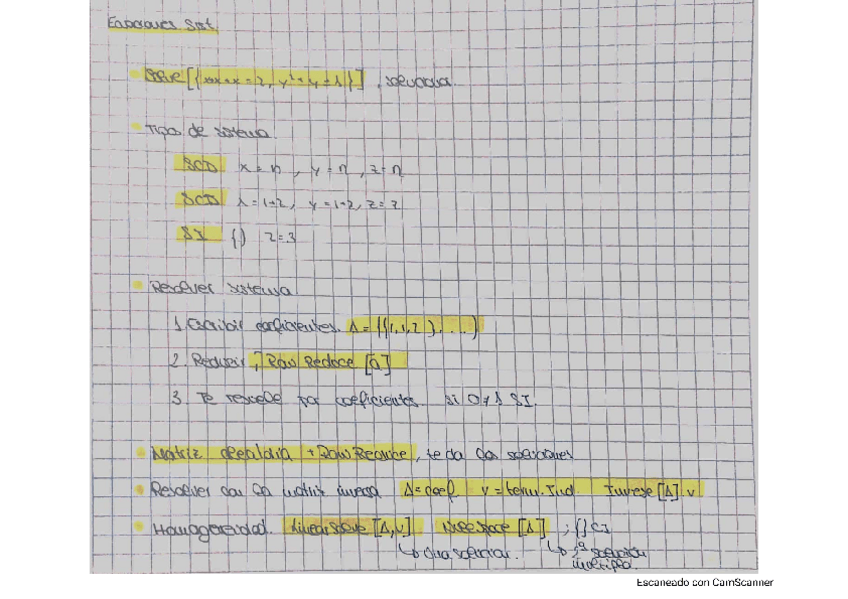 Solve[{xx+x=2, y²+y=1}], soluciona
Tipo de sistema
SCD x=n, y=n, z=n
SCD x=1+z, y=1+z, z=z
SI {} z=3
Resolver sistema
1. Escribir coeficientes. A={{1,1,2},...}
2. Reducir, RowReduce[a]
3. Te resuelve por coeficientes si 0≠1 SI.
Matriz ampliada + RowReduce, te da las soluciones
Resolver con la matriz inversa A=coef v=term. Ind. Inverse[A].v
Homogeneidad. LinearSolve[A,v] NullSpace[A] ; {}
↳ una solucion. ↳ solución
múltiple.
Escaneado con CamScanner